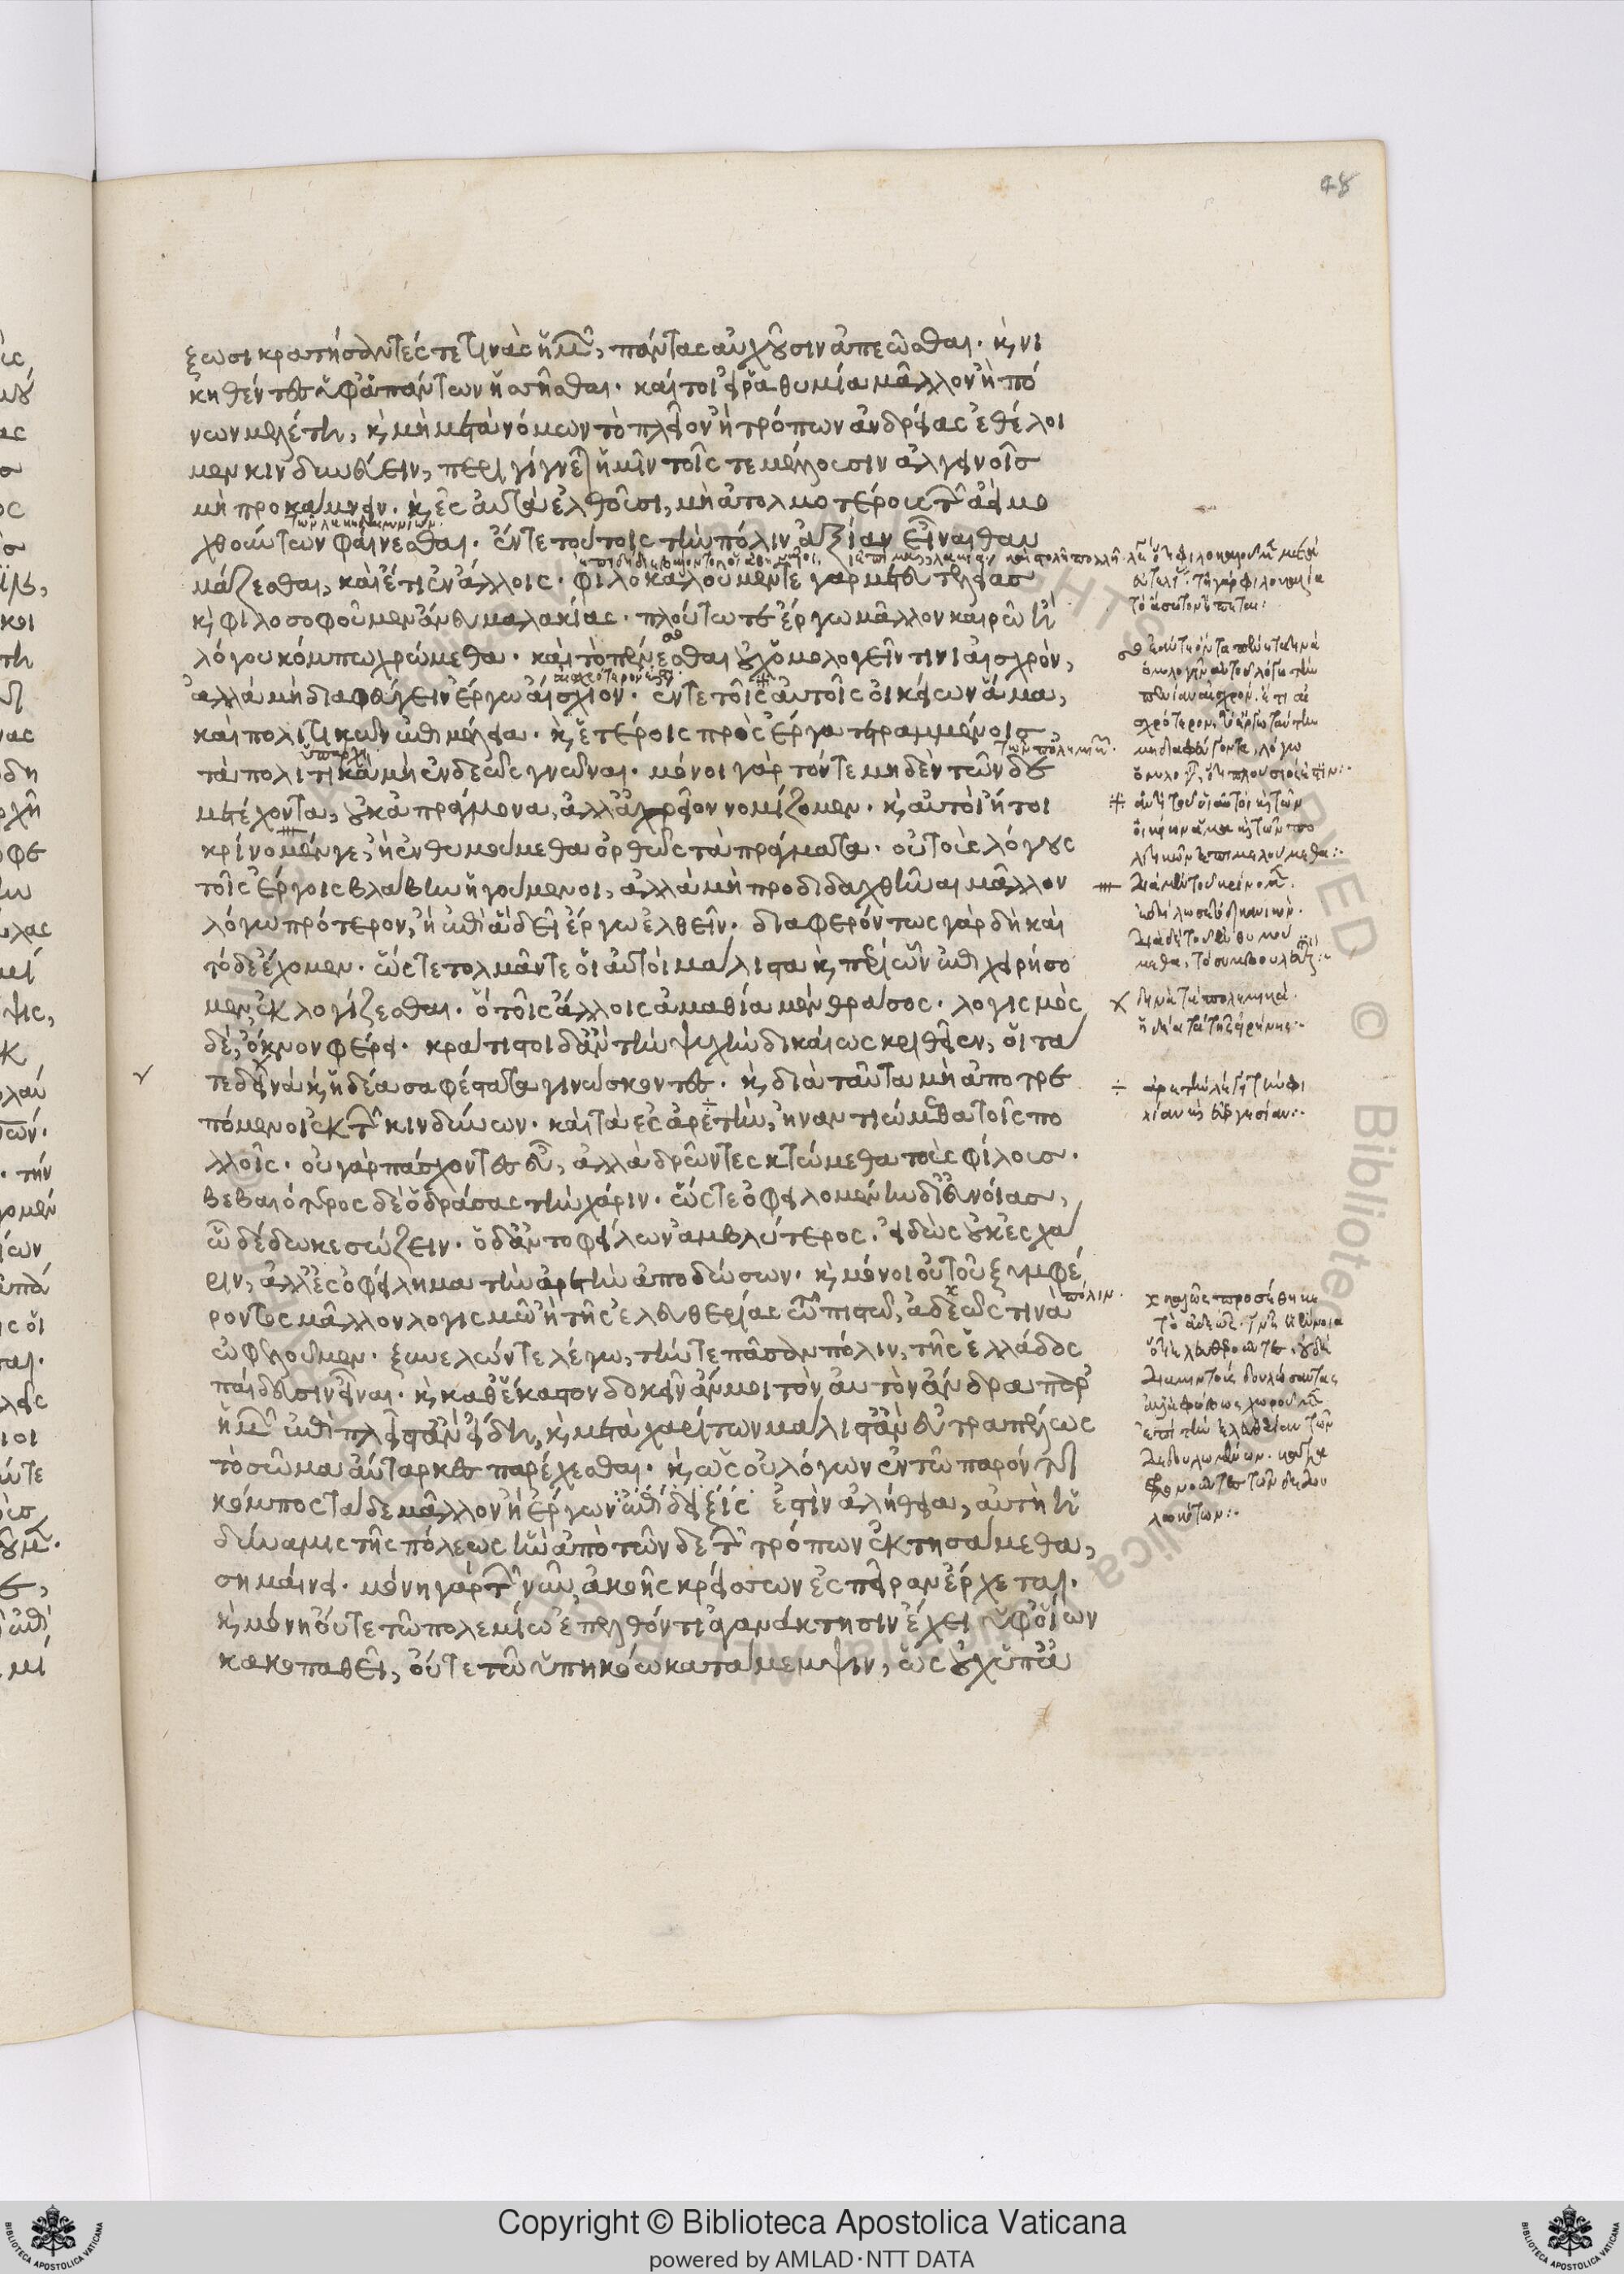 48
ξωσι κρατήσαντές τέ τινας ἡμῶν, πάντας αὐχοῦσιν ἀπεῶσθαι· καὶ νι
κηθέντες ὑφ' ἁπάντων ἡσσῆσθαι· καίτοι εἰ ῥαθυμία μᾶλλον ἢ πό
νων μελέτη, καὶ μὴ μετὰ νόμων τὸ πλεῖον ἢ τρόπων ἀνδρείας ἐθέλοι
μεν κινδυνεύειν, περιγίγνεται ἡμῖν τοῖς τε μέλλουσιν ἀλγεινοῖς
μὴ προκάμνειν· καὶ ἐς αὐτὰ ἐλθοῦσι, μὴ ἀτολμοτέρους τῶν ἀεὶ μο
τῶν λακεδαιμονίων·
χθούντων φαίνεσθαι· ἔν τε τούτοις τὴν πόλιν ἀξίαν εἶναι θαυ
μάζεσθαι, καὶ ἔτι ἐν ἄλλοις· φιλοκαλοῦμέν τε γὰρ μετ' εὐτελείας
καὶ φιλοσοφοῦμεν ἄνευ μαλακίας· πλούτω τε ἔργω μᾶλλον καιρῶ ἢ
λόγου κόμπω χρώμεθα· καὶ τὸ πένεσθαι οὐχ ὁμολογεῖν τινὶ αἰσχρὸν,
αἰσχρότερόν ἐστι·
ἀλλὰ μὴ διαφεύγειν ἔργω αἴσχιον· ἔν τε τοῖς αὐτοῖς οἰκείων ἅμα,
καὶ πολιτικῶν ἐπιμέλεια· καὶ ἑτέροις πρὸς ἔργα τετραμμένοις
ὑπάρχει·
τῶν πολεμικῶν·
τὰ πολιτικὰ μὴ ἐνδεῶς γνῶναι· μόνοι γὰρ τόν τε μηδὲν τῶνδε
μετέχοντα, οὐκ ἀπράγμονα, ἀλλ' ἀχρεῖον νομίζομεν· καὶ αὐτοὶ ἤτοι
κρίνομέν γε, ἢ ἐνθυμούμεθα ὀρθῶς τὰ πράγματα· οὐ τοὺς λόγους
τοῖς ἔργοις βλάβην ἡγούμενοι, ἀλλὰ μὴ προδιδαχθῆναι μᾶλλον
λόγω πρότερον, ἢ ἐπὶ ἃ δεῖ ἔργω ἐλθεῖν· διαφερόντως γὰρ δὴ καὶ
τόδε ἔχομεν· ὥστε τολμᾶν τε οἱ αὐτοὶ μάλιστα καὶ περὶ ὧν ἐπιχειρήσο
μεν ἐκλογίζεσθαι· ὃ τοῖς ἄλλοις ἀμαθία μὲν θράσος· λογισμὸς
δὲ, ὄκνον φέρει· κράτιστοι δ' ἂν τὴν ψυχὴν δικαίως κριθεῖεν, οἱ τά
τε δεινὰ καὶ ἡδέα σαφέστατα γινώσκοντες· καὶ διὰ ταῦτα μὴ ἀποτρε
πόμενοι ἐκ τῶν κινδύνων· καὶ τὰ ἐς ἀρετὴν, ἠναντιώμεθα τοῖς πο
λλοῖς· οὐ γὰρ πάσχοντες εὖ, ἀλλὰ δρῶντες κτώμεθα τοὺς φίλους·
βεβαιότερος δὲ ὁ δράσας τὴν χάριν· ὥστε ὀφειλομένην δι' εὐνοίας,
ὧ δέδωκε σώζειν· ὁ δ' ἀντοφείλων ἀμβλύτερος· εἰδὼς οὐκ ἐς χά
ριν, ἀλλ' ἐς ὀφείλημα τὴν ἀρετὴν ἀποδώσων· καὶ μόνοι οὐ τοῦ ξυμφέ
πόλιν·
ροντος μᾶλλον λογισμῶ ἢ τῆς ἐλευθερίας τῶ πιστῶ, ἀδεῶς τινὰ
ὠφελοῦμεν· ξυνελών τε λέγω, τήν τε πᾶσαν πόλιν, τῆς ἑλλάδος
παίδευσιν εἶναι· καὶ καθ' ἕκαστον δοκεῖν ἄν μοι τὸν αὐτὸν ἄνδρα παρ'
ἡμῶν ἐπὶ πλεῖστ' ἂν εἴδη, καὶ μετὰ χαρίτων μάλιστ' ἂν εὐτραπέλως
τὸ σῶμα αὔταρκες παρέχεσθαι· καὶ ὡς οὐ λόγων ἐν τῶ παρόντι
κόμπος τάδε μᾶλλον ἢ ἔργων ἐστὶν ἀλήθεια, αὐτὴ ἡ
δύναμις τῆς πόλεως ἣν ἀπὸ τῶνδε τῶν τρόπων ἐκτησάμεθα,
σημαίνει· μόνη γὰρ τῶν νῦν ἀκοῆς κρείσσων ἐς πεῖραν ἔρχεται·
καὶ μόνη οὔτε τῶ πολεμίω ἐπελθόντι ἀγανάκτησιν ἔχει ὑφ' οἵων
κακοπαθεῖ, οὔτε τῶ ὑπηκόω κατάμεμψιν, ὡς οὐχ ὑπ' ἀ
ἀντὶ τοῦ οἱ αὐτοὶ καὶ τῶν
οἰκείων ἅμα καὶ τῶν πο
λιτικῶν ἐπιμελούμεθα:
διὰ μὲν τοῦ κρίνομεν
ἐδήλωσε τὸ δικανικόν·
διὰ δὲ τοῦ ἐνθυμού
μεθα, τὸ συμβουλευτικόν:
δεινὰ τὰ πολεμικά·
ἡδέα τὰ τῆς εἰρήνης:
ἀρετὴν λέγει τὴν φι
λίαν καὶ εὐεργεσίαν:
καλῶς προσέθηκε
τὸ ἀδεῶς·
Copyright © Biblioteca Apostolica Vaticana
powered by AMLAD·NTT DATA